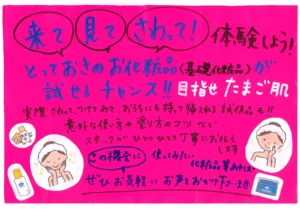 来て 見て さわって! 体験しよう!
とっておきのお化粧品(基礎化粧品)が
試せるチャンス!! 目指せ たまご肌
実際 さわって、つけてみて、おうちにも持って帰れる試供品も!!
意外な使い方や塗り方のコツなど
スタッフが ひとつひとつ丁寧にお伝えします
この機会に 使ってみたい 化粧品等あれば
ぜひお気軽に お声をおかけ下さいませ